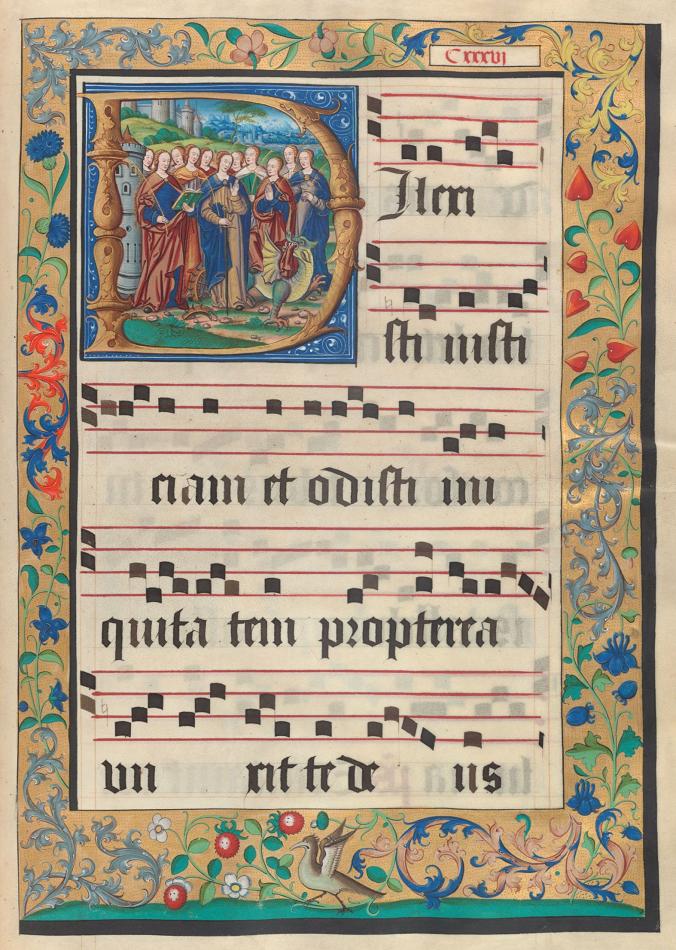 Cxxxvj
Dilexi
sti iusti
ciam et odisti ini
quita tem propterea
vn xit te de us